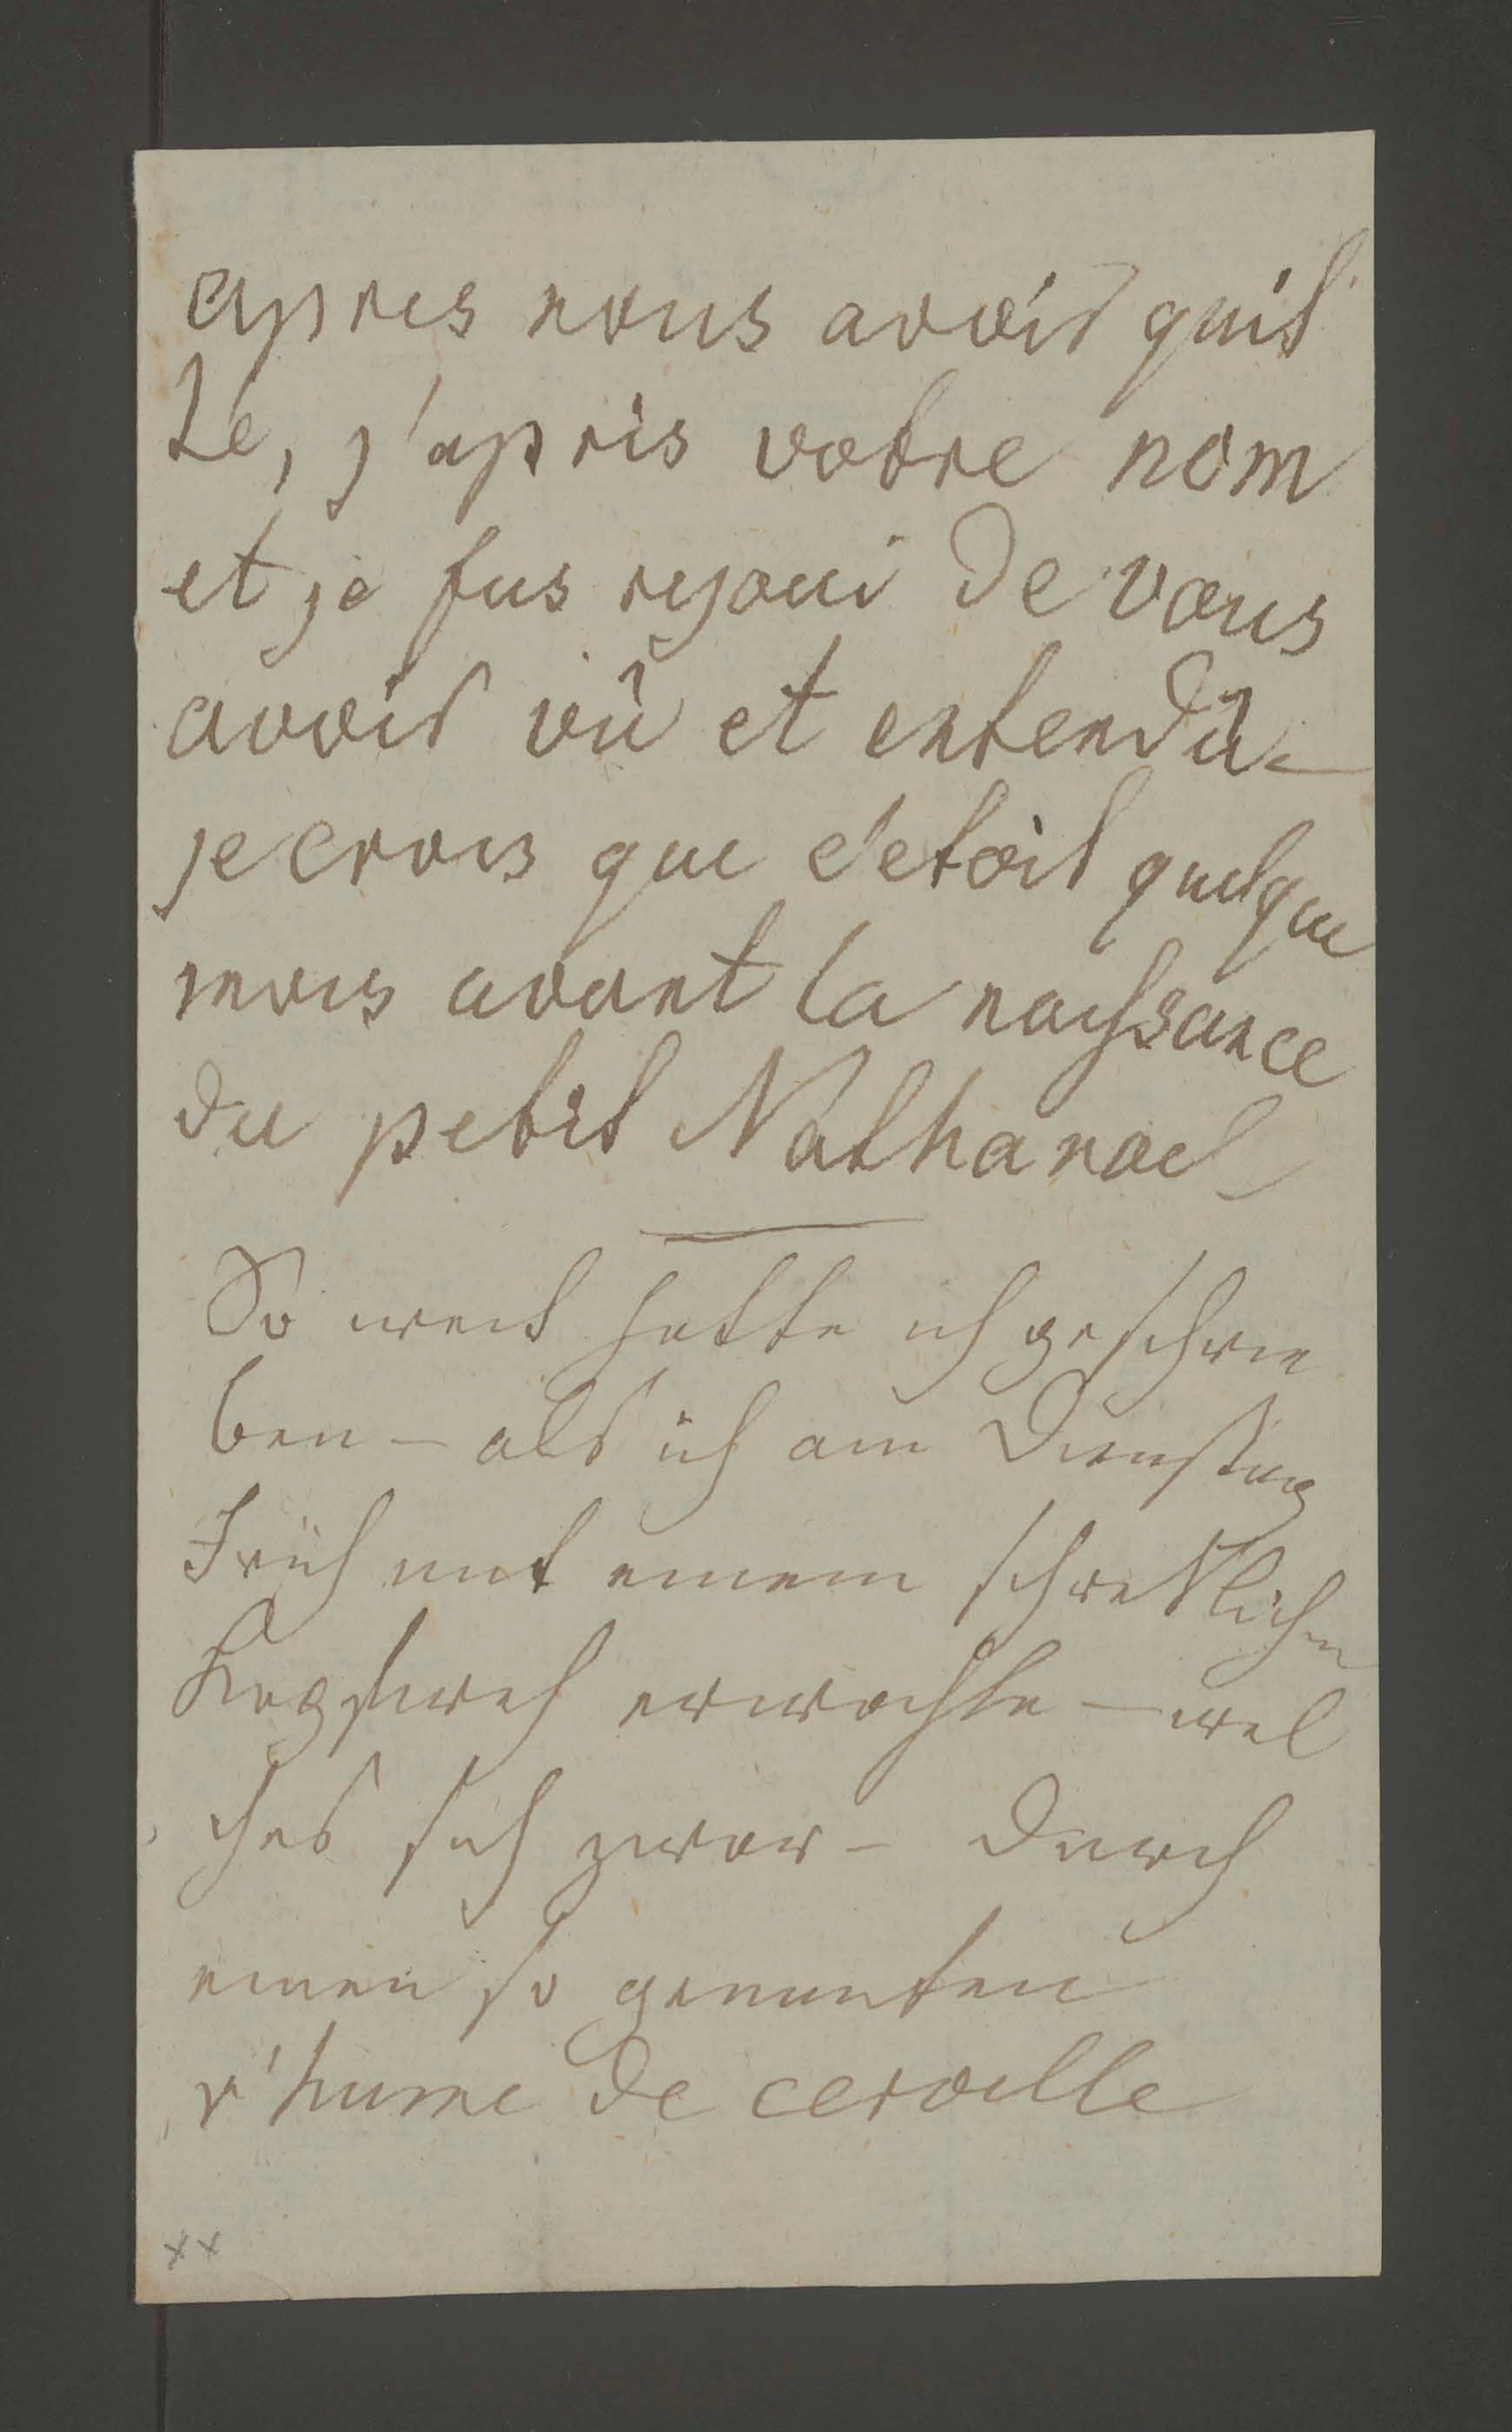 apres nous avoir quit
té, j'apris votre nom
et je fus rejoui de vous
avoir vû et entendû —
je crois que c'etoit quelque
mois avant la naissance
du petit Nathanael
So weit hatte ich geschrie
ben — als ich am Dienstag
Früh mit einem schreklichen
Kopfweh erwachte — wel
ches sich zwar — durch
einen so genanten
r'hume de cervelle
xx